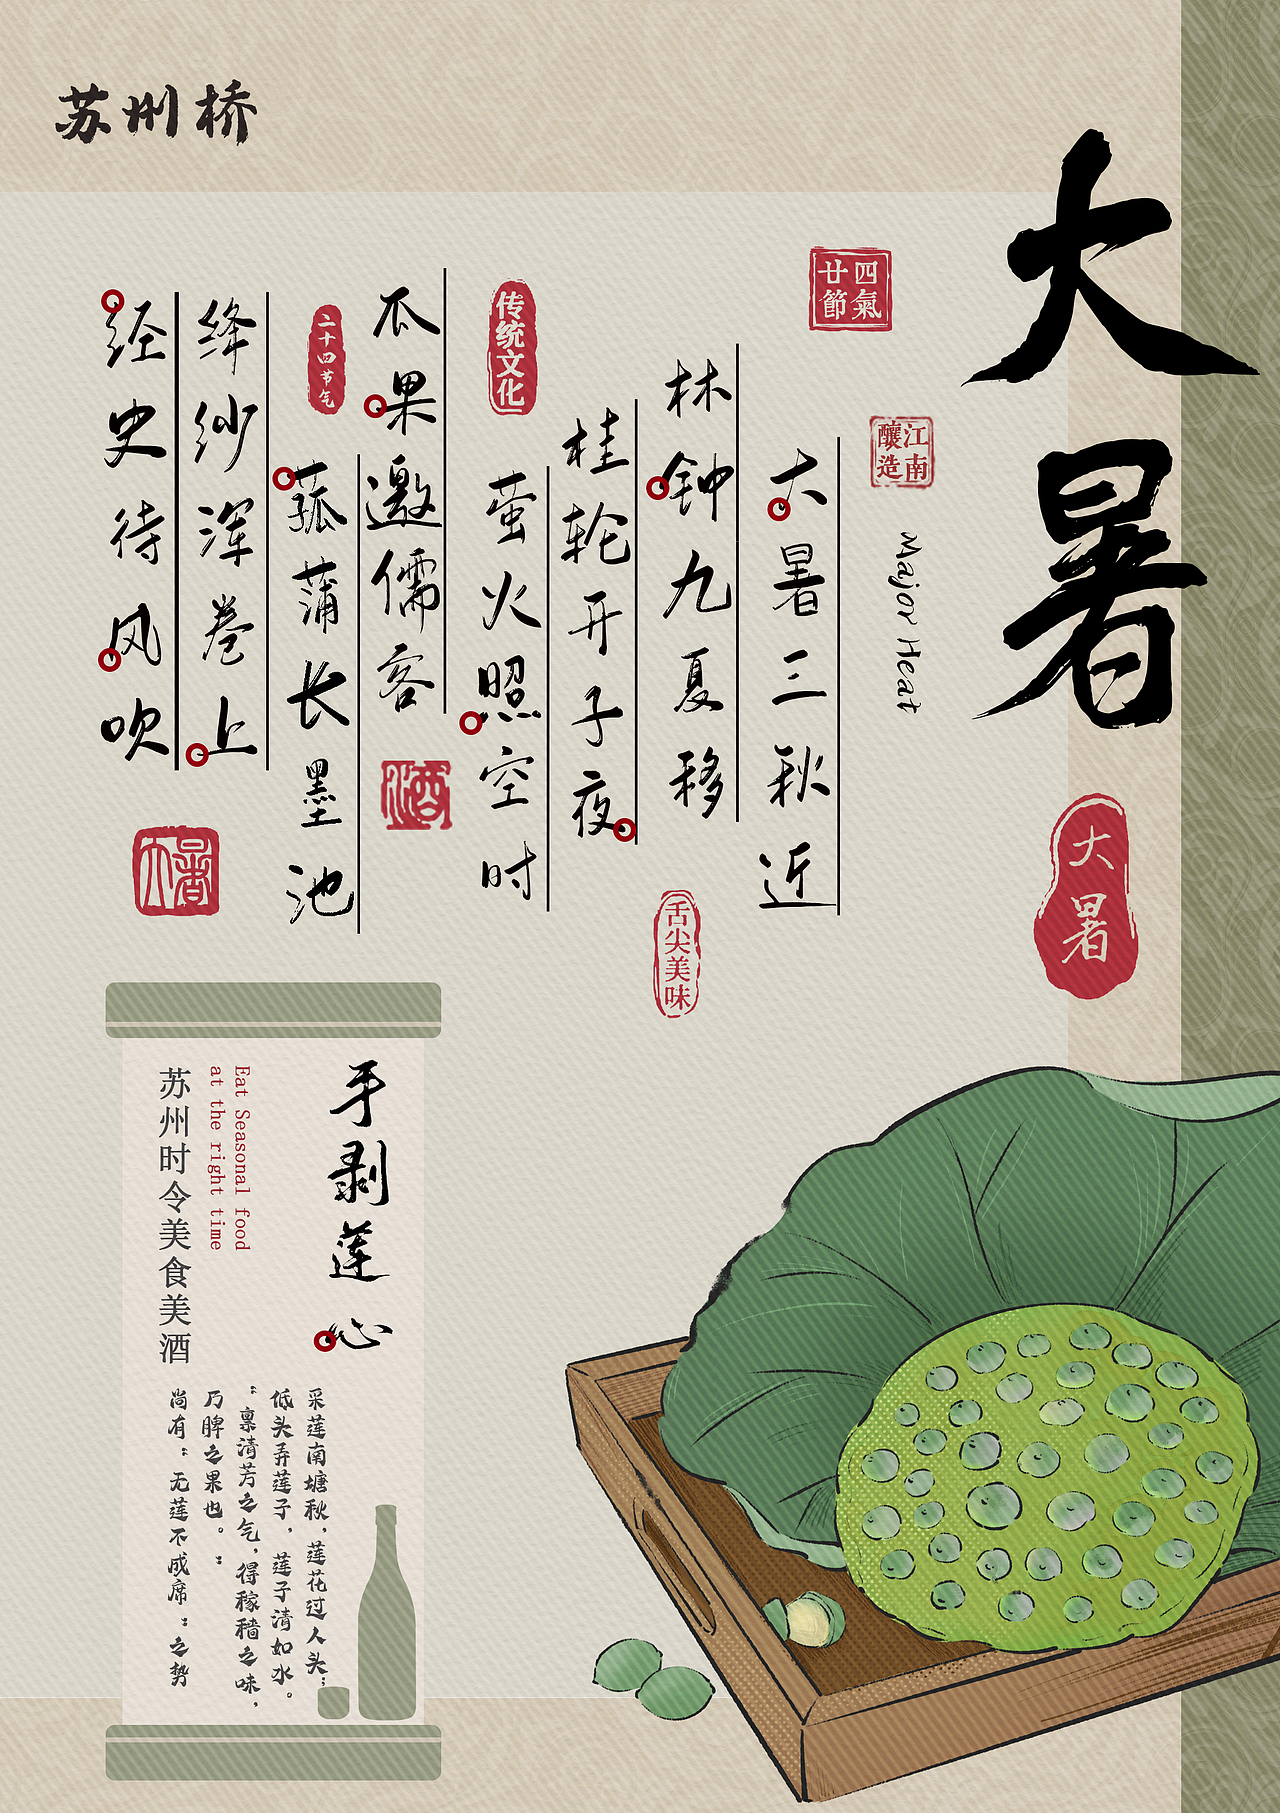 苏州桥
大暑
四氣
廿節
江南
釀造
Major Heat
大暑
大暑三秋近
林钟九夏移
桂轮开子夜
萤火照空时
瓜果邀儒客
菰蒲长墨池
绛纱浑卷上
经史待风吹
传统文化
二十四节气
酒
舌尖美味
大暑
手剥莲心
Eat Seasonal food
at the right time
苏州时令美食美酒
采莲南塘秋，莲花过人头；
低头弄莲子，莲子清如水。
“禀清芳之气，得稼穑之味，
乃脾之果也。”
尚有“无莲不成席”之势